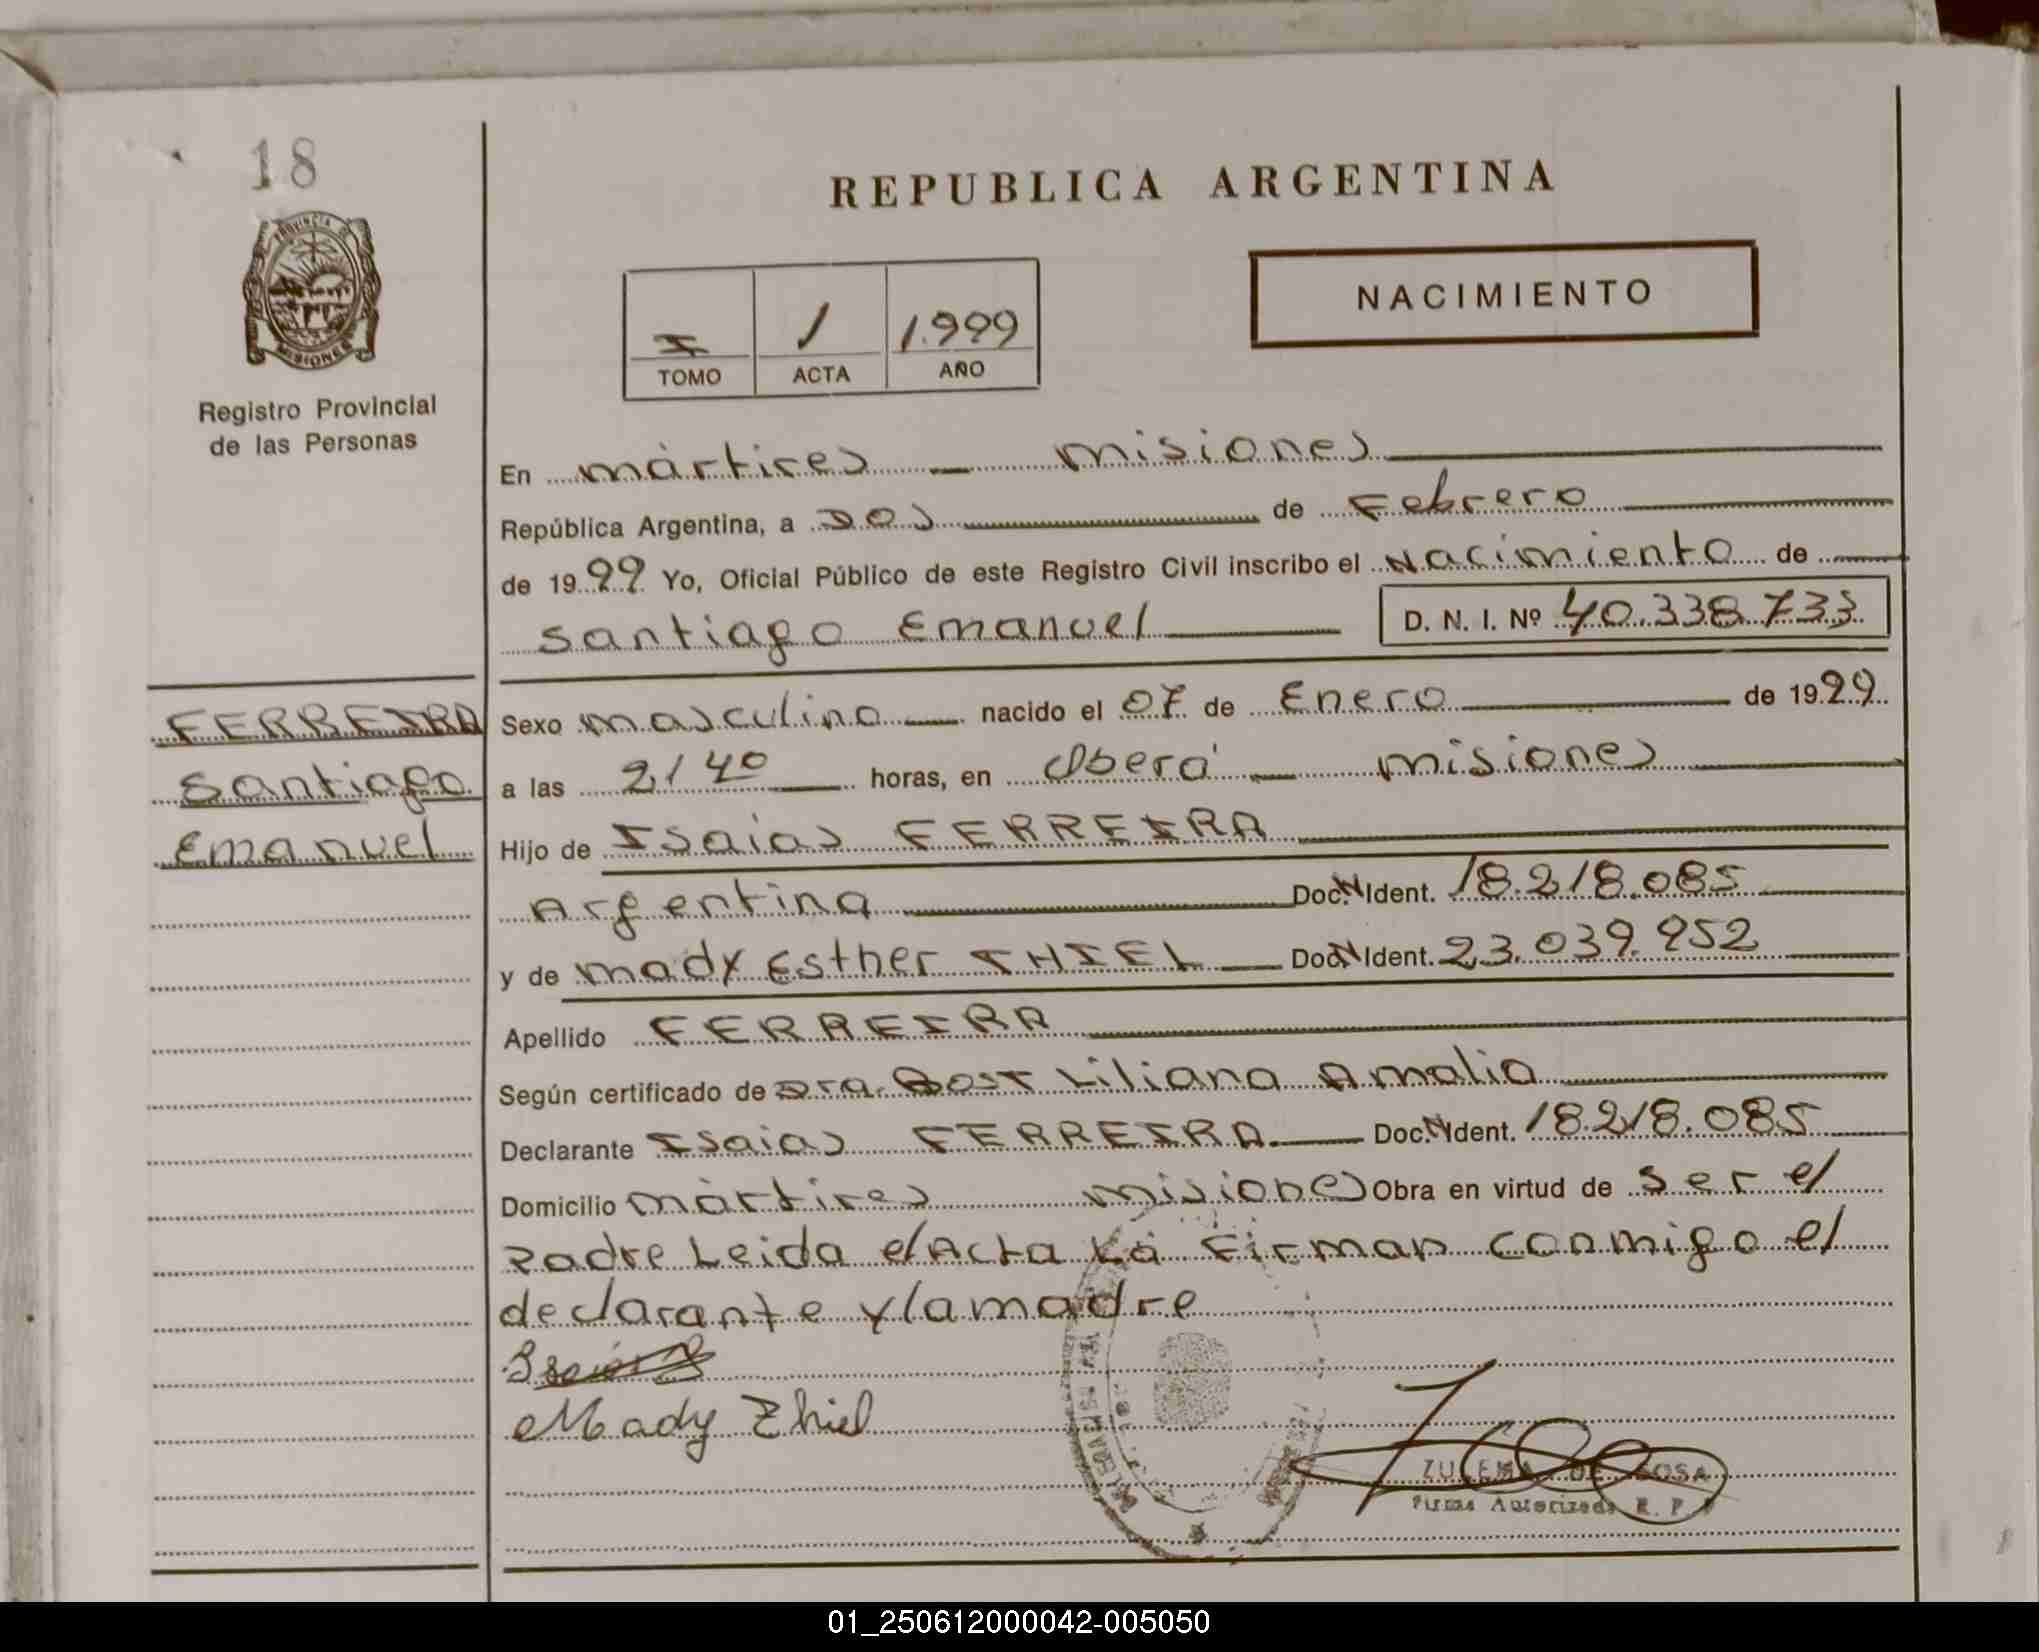 18
PROVINCIA DE
MISIONES
Registro Provincial
de las Personas
REPUBLICA ARGENTINA
NACIMIENTO
I 1 1.999
TOMO ACTA AÑO
En mártires - misiones
República Argentina, a DOS de Febrero
de 1999 Yo, Oficial Público de este Registro Civil inscribo el Nacimiento de
Santiago Emanuel D. N. I. Nº 40.338.733
FERREIRA
Santiago
Emanuel
Sexo masculino nacido el 07 de Enero de 1999
a las 21 40 horas, en Oberá - misiones
Hijo de Isaias FERREIRA
Argentina Doc. N Ident. 18.218.085
y de mady Esther THIEL Doc. N Ident. 23.039.952
Apellido FERREIRA
Según certificado de Dra. Bost Liliana Amalia
Declarante Isaias FERREIRA Doc. N Ident. 18.218.085
Domicilio mártires misiones Obra en virtud de ser el
Padre Leida el Acta La Firman conmigo el
declarante y la madre
Isaias
Mady Thiel
ZULEMA DE SOSA
Firma Autorizada R. P. P
01_250612000042-005050